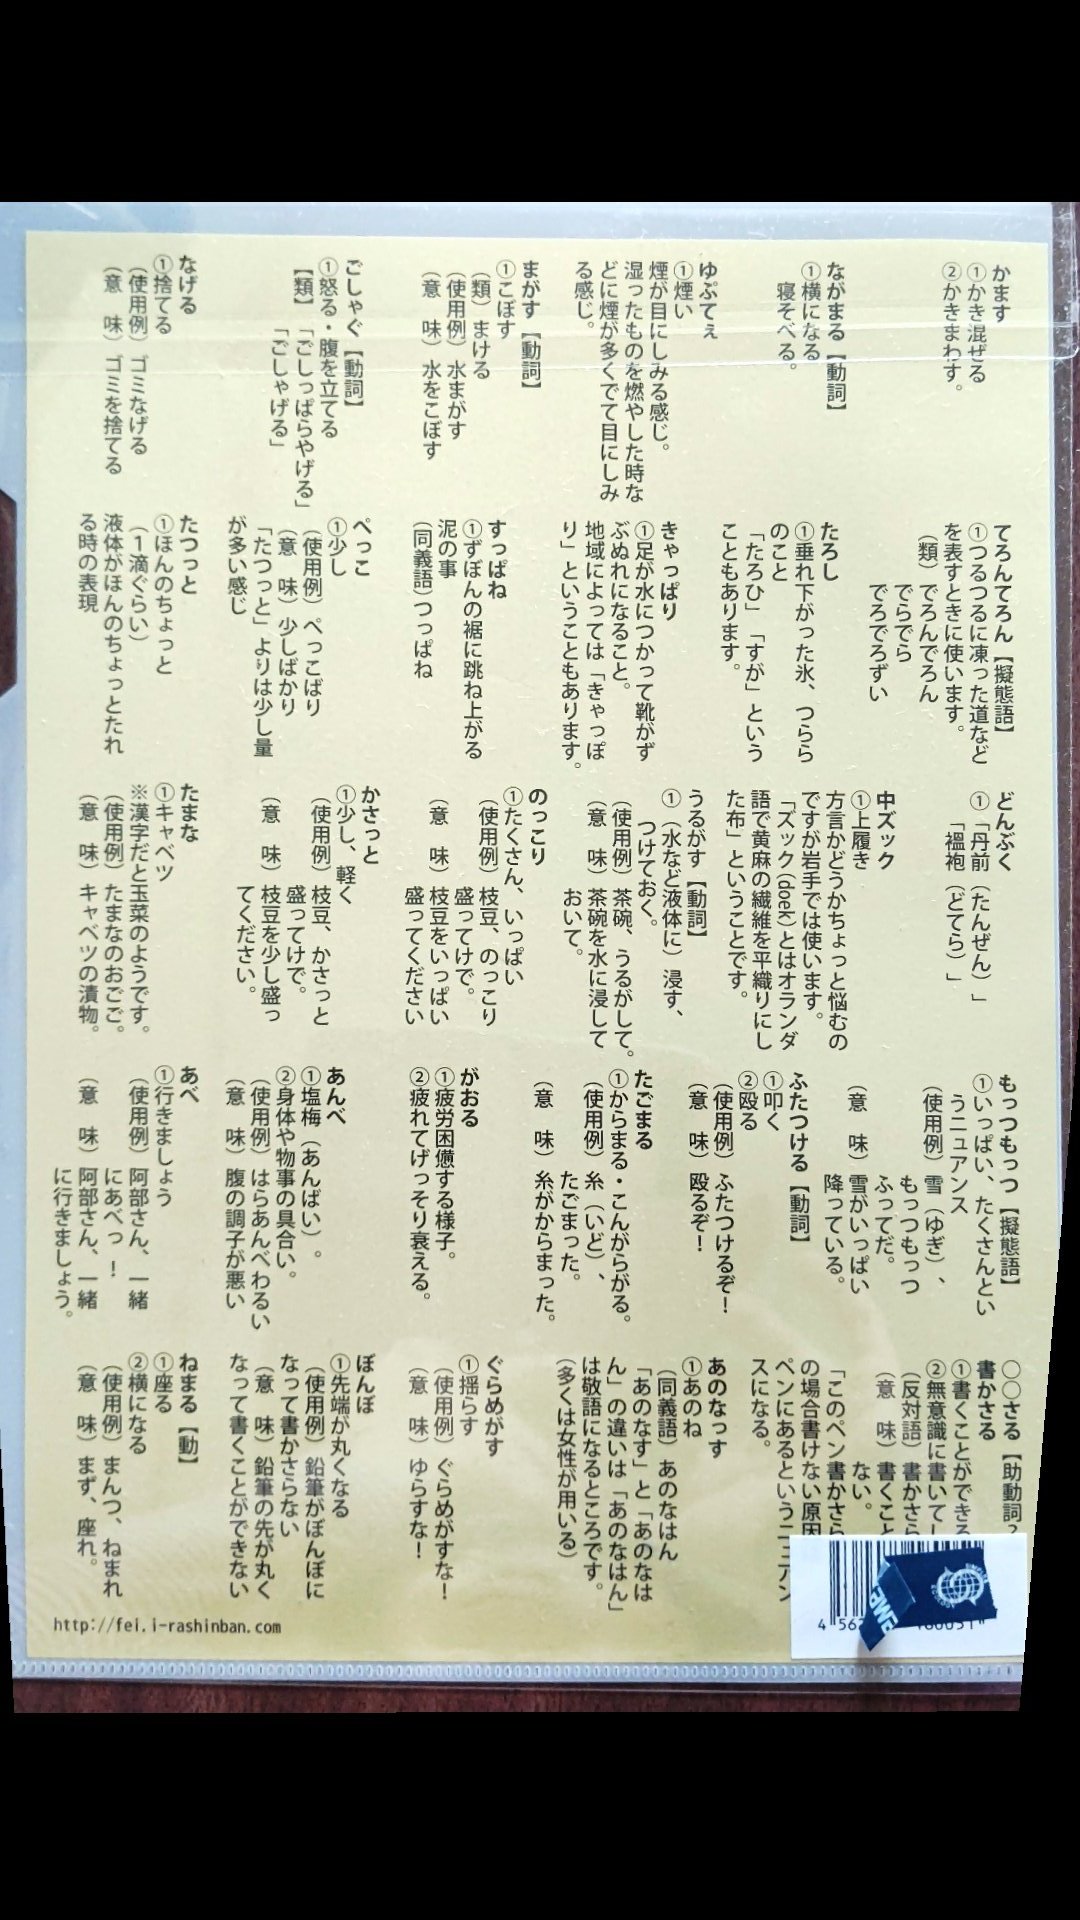 かます
①かき混ぜる
②かきまわす。
ながまる【動詞】
①横になる
寝そべる。
ゆぷてぇ
①煙い
煙が目にしみる感じ。
湿ったものを燃やした時な
どに煙が多くでて目にしみ
る感じ。
まがす【動詞】
①こぼす
（類）まける
（使用例）水まがす
（意　味）水をこぼす
ごしゃぐ【動詞】
①怒る・腹を立てる
【類】「ごしっぱらやげる」
「ごしゃげる」
なげる
①捨てる
（使用例）ゴミなげる
（意　味）ゴミを捨てる
てろんてろん【擬態語】
①つるつるに凍った道など
を表すときに使います。
（類）でろんでろん
でらでら
でろでろずい
たろし
①垂れ下がった氷、つらら
のこと
「たろひ」「すが」という
こともあります。
きゃっぱり
①足が水につかって靴がず
ぶぬれになること。
地域によっては「きゃっぽ
り」ということもあります。
すっぱね
①ずぼんの裾に跳ね上がる
泥の事
（同義語）つっぱね
ぺっこ
①少し
（使用例）ぺっこばり
（意　味）少しばかり
「たつっと」よりは少し量
が多い感じ
たつっと
①ほんのちょっと
（１滴ぐらい）
液体がほんのちょっとたれ
る時の表現
どんぶく
①「丹前（たんぜん）」
「褞袍（どてら）」
中ズック
①上履き
方言かどうかちょっと悩むの
ですが岩手では使います。
「ズック(doek)とはオランダ
語で黄麻の繊維を平織りにし
た布」ということです。
うるがす【動詞】
①（水など液体に）浸す、
つけておく。
（使用例）茶碗、うるがして。
（意　味）茶碗を水に浸して
おいて。
のっこり
①たくさん、いっぱい
（使用例）枝豆、のっこり
盛ってけで。
（意　味）枝豆をいっぱい
盛ってください
かさっと
①少し、軽く
（使用例）枝豆、かさっと
盛ってけで。
（意　味）枝豆を少し盛っ
てください。
たまな
①キャベツ
※漢字だと玉菜のようです。
（使用例）たまなのおごご。
（意　味）キャベツの漬物。
もっつもっつ【擬態語】
①いっぱい、たくさんとい
うニュアンス
（使用例）雪（ゆぎ）、
もっつもっつ
ふってだ。
（意　味）雪がいっぱい
降っている。
ふたつける【動詞】
①叩く
②殴る
（使用例）ふたつけるぞ！
（意　味）殴るぞ！
たごまる
①からまる・こんがらがる。
（使用例）糸（いど）、
たごまった。
（意　味）糸がからまった。
がおる
①疲労困憊する様子。
②疲れてげっそり衰える。
あんべ
①塩梅（あんばい）。
②身体や物事の具合い。
（使用例）はらあんべわるい
（意　味）腹の調子が悪い
あべ
①行きましょう
（使用例）阿部さん、一緒
にあべっ！
（意　味）阿部さん、一緒
に行きましょう。
○○さる【助動詞？
書かさる
①書くことができる
②無意識に書いてし
（反対語）書かさら
（意　味）書くこと
ない。
「このペン書かさら
の場合書けない原因
ペンにあるというニュアン
スになる。
あのなっす
①あのね
（同義語）あのなはん
「あのなす」と「あのなは
ん」の違いは「あのなはん」
は敬語になるところです。
（多くは女性が用いる）
ぐらめがす
①揺らす
（使用例）ぐらめがすな！
（意　味）ゆらすな！
ぼんぼ
①先端が丸くなる
（使用例）鉛筆がぼんぼに
なって書かさらない
（意　味）鉛筆の先が丸く
なって書くことができない
ねまる【動】
①座る
②横になる
（使用例）まんつ、ねまれ
（意　味）まず、座れ。
http://fei.i-rashinban.com